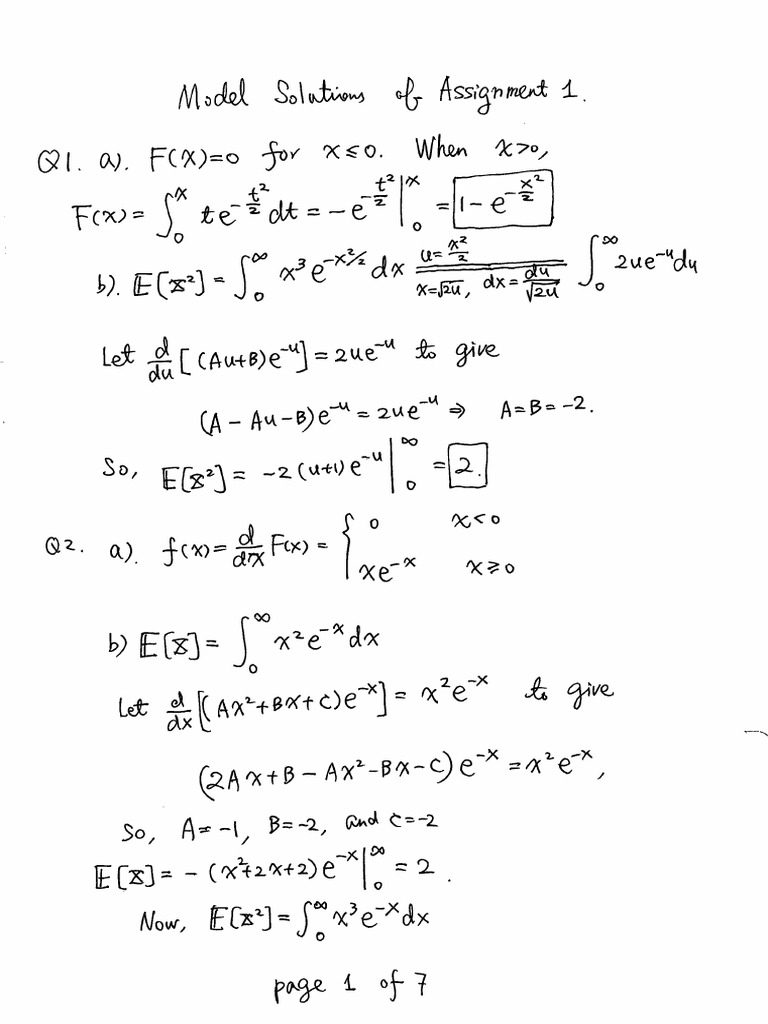 Model Solutions of Assignment 1.
Q1. a). F(x)=0 for x≤0. When x>0,
F(x) = ∫₀ˣ te^{-t²/2} dt = -e^{-t²/2} |₀ˣ = 1 - e^{-x²/2}
b). E[X²] = ∫₀^∞ x³e^{-x²/2} dx = (u = x²/2, x=√2u, dx = du/√2u) ∫₀^∞ 2ue^{-u}du
Let d/du [(Au+B)e^{-u}] = 2ue^{-u} to give
(A - Au - B)e^{-u} = 2ue^{-u} ⇒ A=B=-2.
So, E[X²] = -2(u+1)e^{-u} |₀^∞ = 2.
Q2. a). f(x) = d/dx F(x) = { 0 x<0
xe^{-x} x≥0
b) E[X] = ∫₀^∞ x²e^{-x}dx
Let d/dx [(Ax²+Bx+C)e^{-x}] = x²e^{-x} to give
(2Ax+B - Ax² - Bx - C)e^{-x} = x²e^{-x},
So, A=-1, B=-2, and C=-2
E[X] = -(x²+2x+2)e^{-x} |₀^∞ = 2.
Now, E[X²] = ∫₀^∞ x³e^{-x}dx
page 1 of 7